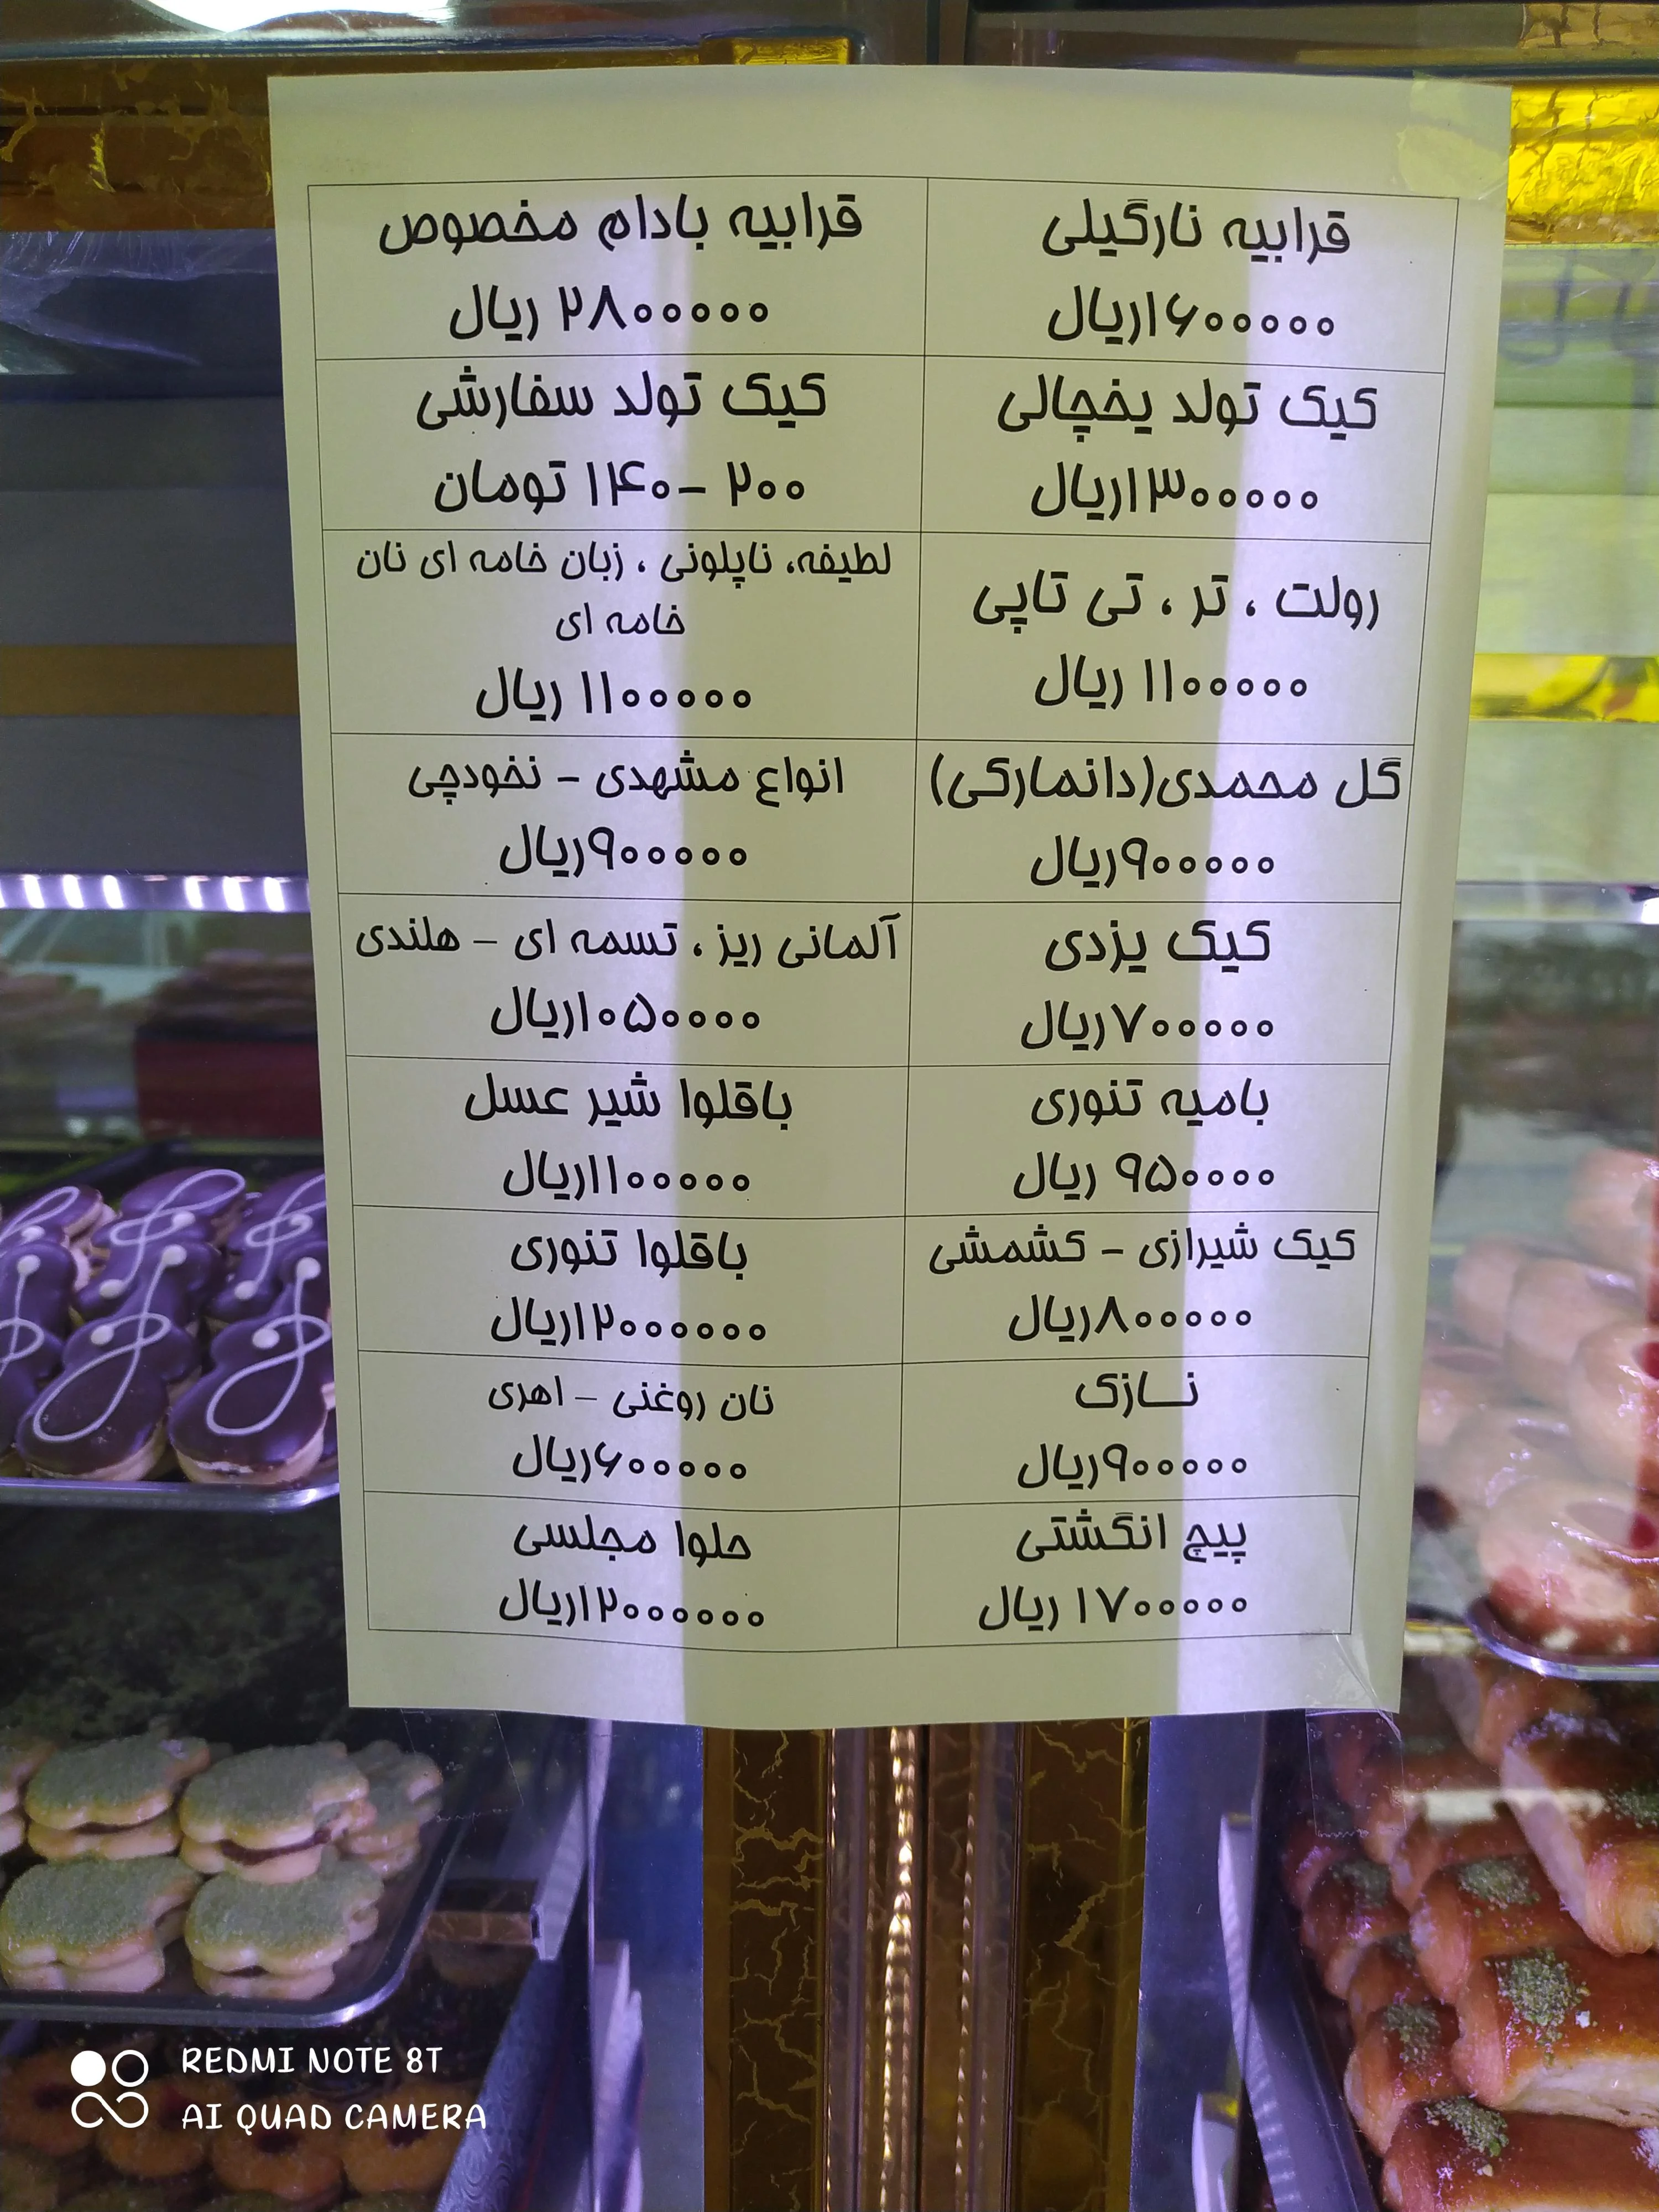 قرابیه نارگیلی
۱۶۰۰۰۰۰ریال
قرابیه بادام مخصوص
۲۸۰۰۰۰۰ ریال
کیک تولد یخچالی
۱۳۰۰۰۰۰ریال
کیک تولد سفارشی
۲۰۰ -۱۴۰ تومان
رولت ، تر ، تی تاپی
۱۱۰۰۰۰۰ ریال
لطیفه، ناپلونی ، زبان خامه ای نان
خامه ای
۱۱۰۰۰۰۰ ریال
گل محمدی(دانمارکی)
۹۰۰۰۰۰ریال
انواع مشهدی - نخودچی
۹۰۰۰۰۰ریال
کیک یزدی
۷۰۰۰۰۰ریال
آلمانی ریز ، تسمه ای – هلندی
۱۰۵۰۰۰۰ریال
بامیه تنوری
۹۵۰۰۰۰ ریال
باقلوا شیر عسل
۱۱۰۰۰۰۰ریال
کیک شیرازی - کشمشی
۸۰۰۰۰۰ریال
باقلوا تنوری
۱۲۰۰۰۰۰۰ریال
نــازک
۹۰۰۰۰۰ریال
نان روغنی – اهری
۶۰۰۰۰۰ریال
پیچ انگشتی
۱۷۰۰۰۰۰ ریال
حلوا مجلسی
۱۲۰۰۰۰۰۰ریال
REDMI NOTE 8T
AI QUAD CAMERA